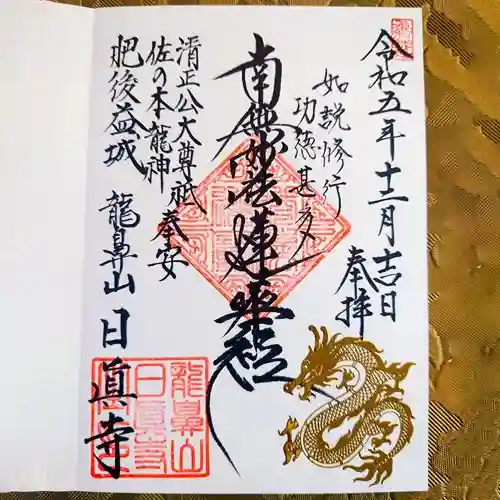 令和五年十二月吉日
奉拝
如説修行
功徳甚多
南無妙法蓮華経
清正公大尊祇奉安
佐の木龍神
肥後益城
龍鼻山日眞寺
龍鼻山
日眞寺